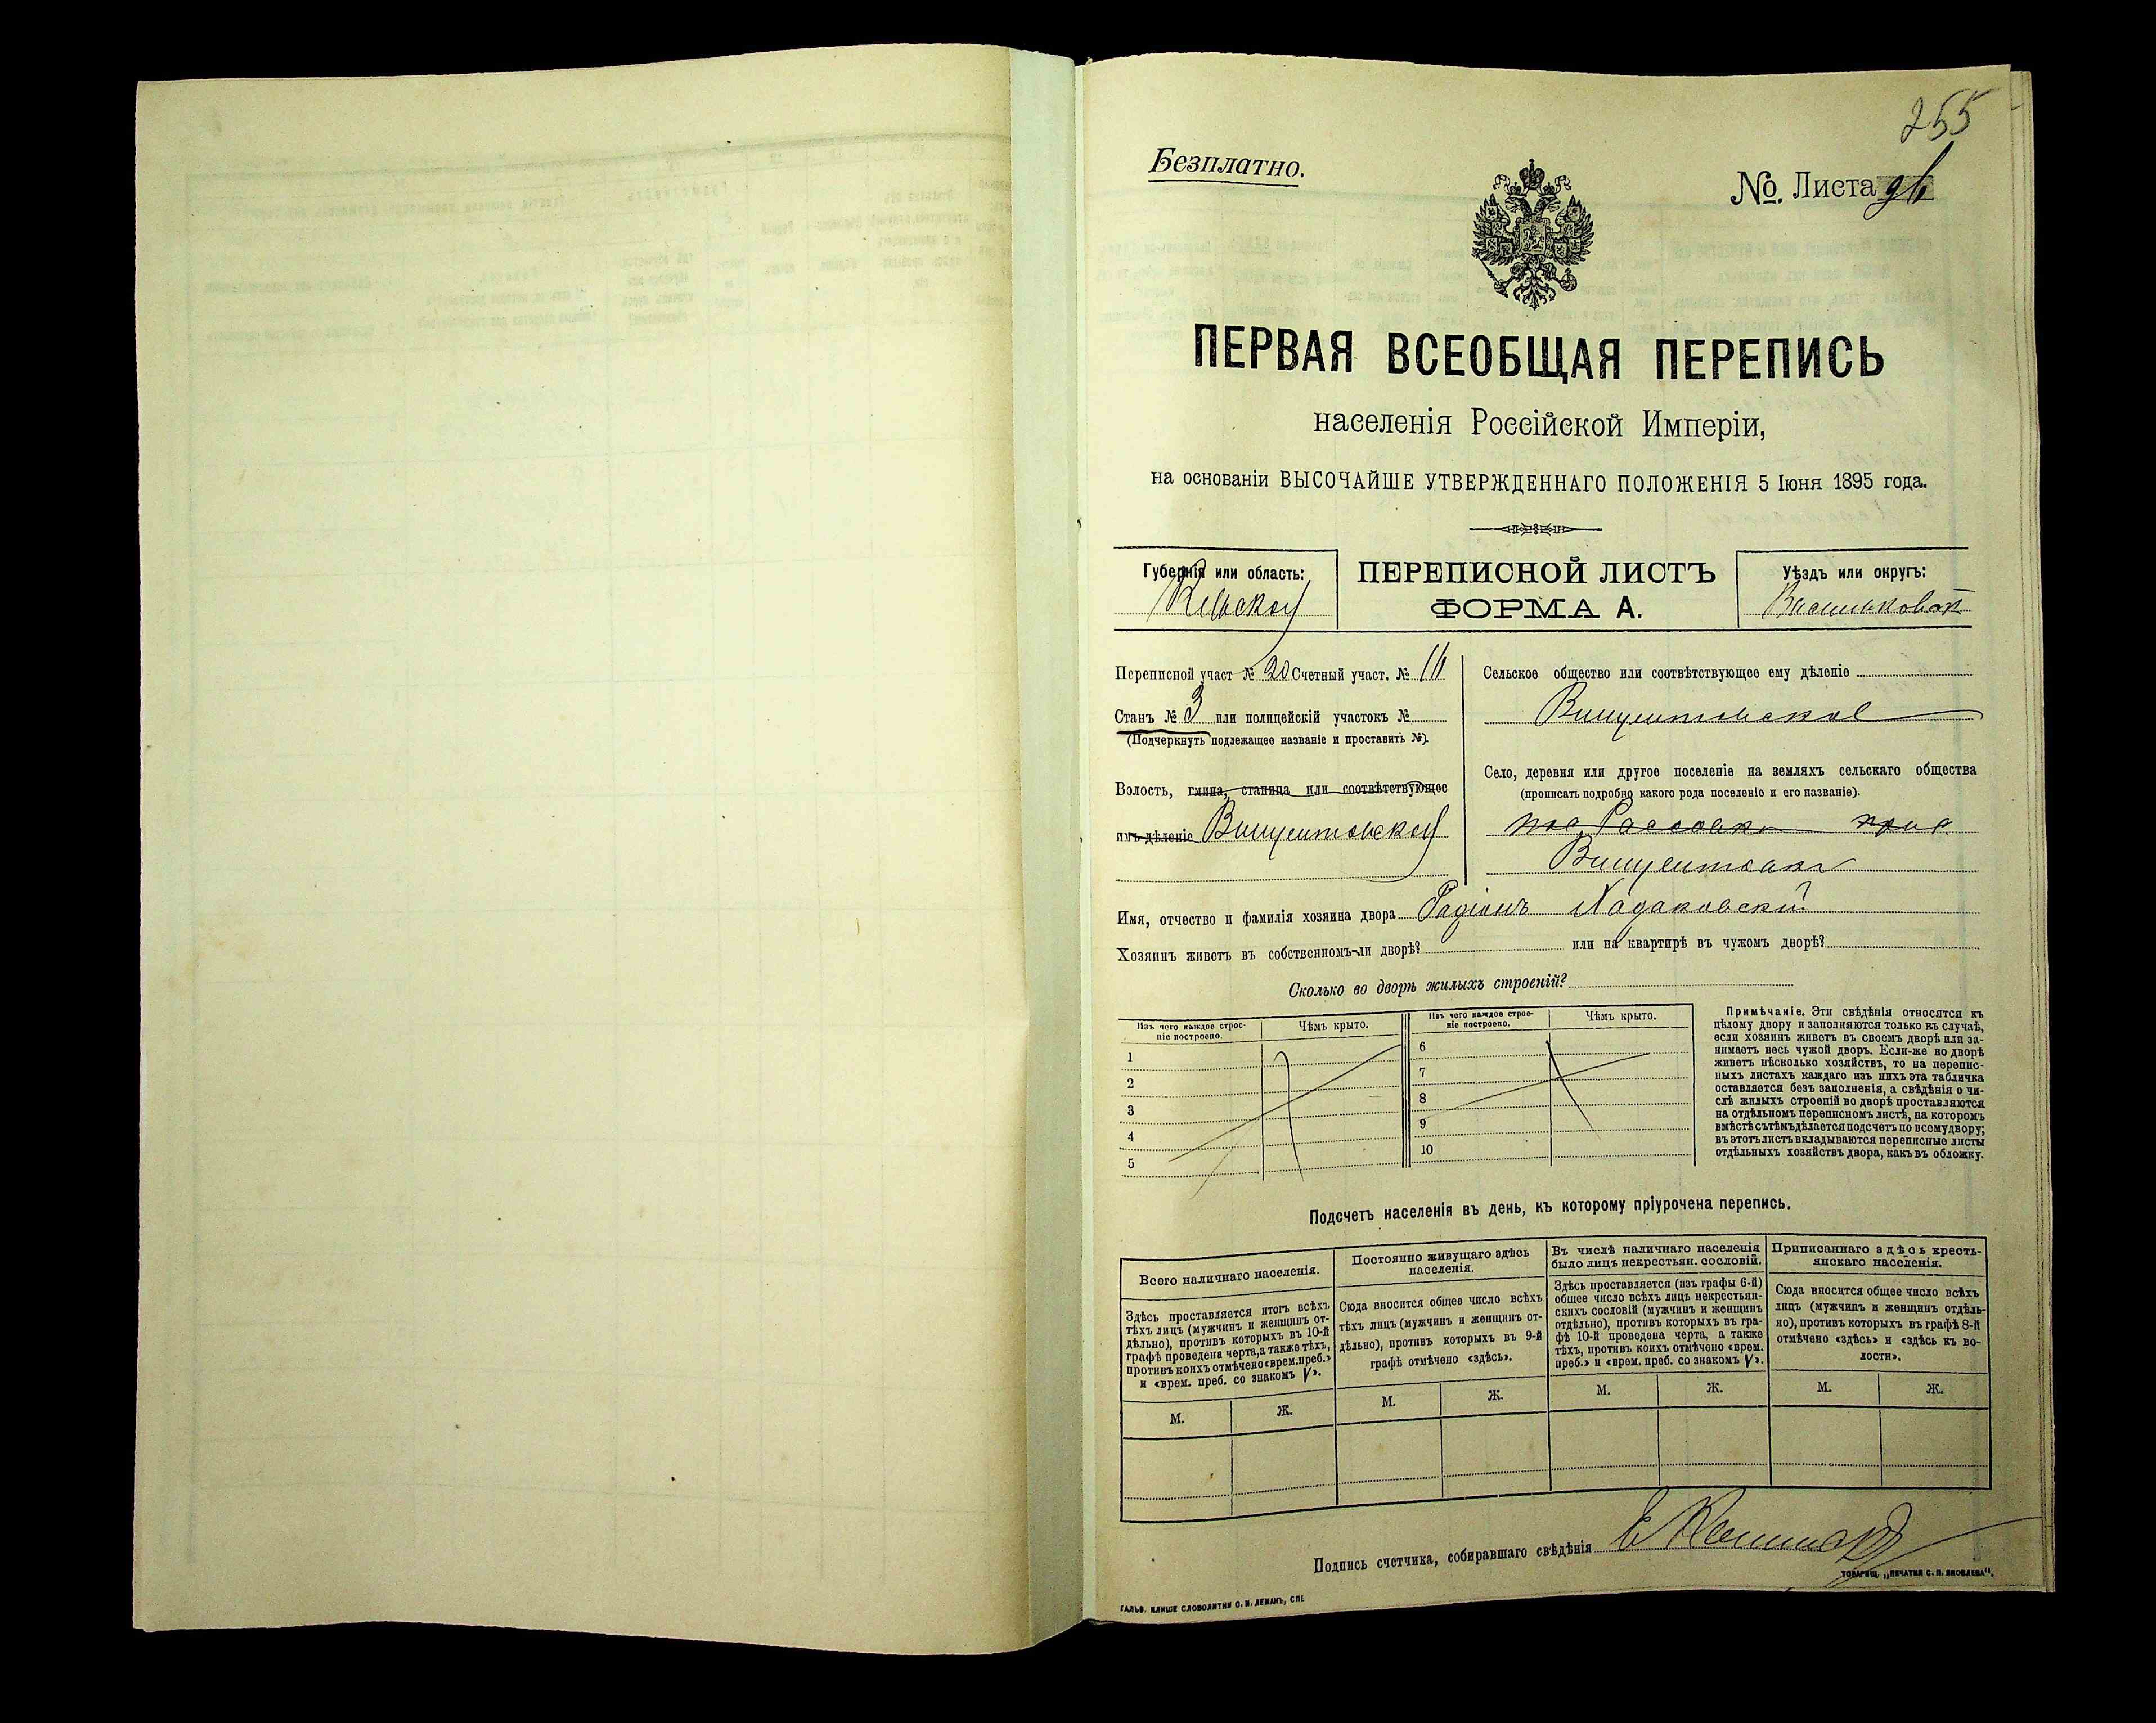 255
Безплатно.
№. Листа 96
ПЕРВАЯ ВСЕОБЩАЯ ПЕРЕПИСЬ
населенія Россійской Имперіи,
на основаніи ВЫСОЧАЙШЕ УТВЕРЖДЕННАГО ПОЛОЖЕНІЯ 5 Іюня 1895 года.
Губернія или область:
Кіевской
ПЕРЕПИСНОЙ ЛИСТЪ
ФОРМА А.
Уѣздъ или округъ:
Васильковск
Переписной участ № 20 Счетный участ. № 16
Станъ № 3 или полицейскій участокъ №
(Подчеркнуть подлежащее названіе и проставить №).
Волость, гмина, станица или соотвѣтствующее
имъ дѣленіе Винцентовской
Сельское общество или соотвѣтствующее ему дѣленіе
Винцентовское
Село, деревня или другое поселеніе на земляхъ сельскаго общества
(прописать подробно какого рода поселеніе и его названіе).
Винцентовка
Имя, отчество и фамилія хозяина двора Радіонъ Ходаковскій
Хозяинъ живетъ въ собственномъ-ли дворѣ? или на квартирѣ въ чужомъ дворѣ?
Сколько во дворѣ жилыхъ строеній?
Изъ чего каждое строе-
ніе построено.
Чѣмъ крыто.
1
2
3
4
5
Изъ чего каждое строе-
ніе построено.
Чѣмъ крыто.
6
7
8
9
10
Примѣчаніе. Эти свѣдѣнія относятся къ
цѣлому двору и заполняются только въ случаѣ,
если хозяинъ живетъ въ своемъ дворѣ или за-
нимаетъ весь чужой дворъ. Если-же во дворѣ
живетъ нѣсколько хозяйствъ, то на перепис-
ныхъ листахъ каждаго изъ нихъ эта табличка
оставляется безъ заполненія, а свѣдѣнія о чи-
слѣ жилыхъ строеній во дворѣ проставляются
на отдѣльномъ переписномъ листѣ, на которомъ
вмѣстѣ съ тѣмъ дѣлается подсчетъ по всему двору;
въ этотъ листъ вкладываются переписные листы
отдѣльныхъ хозяйствъ двора, какъ въ обложку.
Подсчетъ населенія въ день, къ которому пріурочена перепись.
Всего наличнаго населенія.
Здѣсь проставляется итогъ всѣхъ
тѣхъ лицъ (мужчинъ и женщинъ от-
дѣльно), противъ которыхъ въ 10-й
графѣ проведена черта, а также тѣхъ,
противъ коихъ отмѣчено «врем. преб.»
и «врем. преб. со знакомъ V».
М. Ж.
Постоянно живущаго здѣсь
населенія.
Сюда вносится общее число всѣхъ
тѣхъ лицъ (мужчинъ и женщинъ от-
дѣльно), противъ которыхъ въ 9-й
графѣ отмѣчено «здѣсь».
М. Ж.
Въ числѣ наличнаго населенія
было лицъ некрестьян. сословій.
Здѣсь проставляется (изъ графы 6-й)
общее число всѣхъ лицъ некрестьян-
скихъ сословій (мужчинъ и женщинъ
отдѣльно), противъ которыхъ въ гра-
фѣ 10-й проведена черта, а также
тѣхъ, противъ коихъ отмѣчено «врем.
преб.» и «врем. преб. со знакомъ V».
М. Ж.
Приписаннаго здѣсь кресть-
янскаго населенія.
Сюда вносится общее число всѣхъ
лицъ (мужчинъ и женщинъ отдѣль-
но), противъ которыхъ въ графѣ 8-й
отмѣчено «здѣсь» и «здѣсь къ во-
лости».
М. Ж.
Подпись счетчика, собиравшаго свѣдѣнія
ТОВАРИЩ. „ПЕЧАТНЯ С. П. ЯКОВЛЕВА“.
ГАЛЬВ. КЛИШЕ СЛОВОЛИТНИ О. И. ЛЕМАНЪ, СПБ